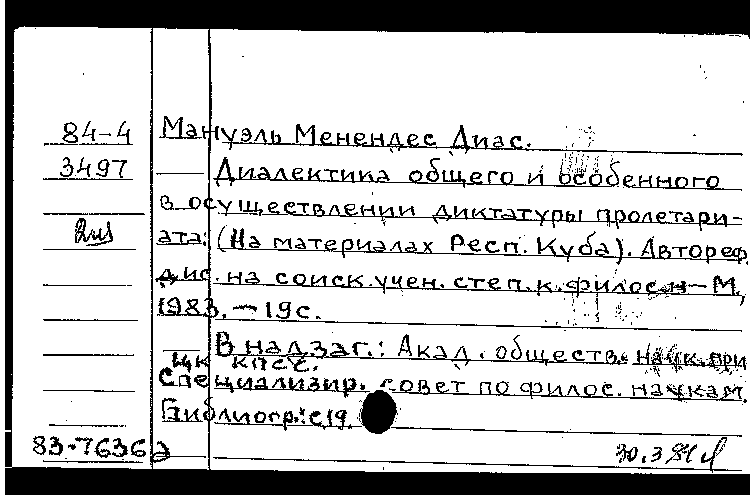 84-4 Мануэль Менендес Диас.
3497 Диалектика общего и особенного
в осуществлении диктатуры пролетари-
ата: (На материалах Респ. Куба). Автореф.
дис. на соиск. учен. степ. к. филос. н — М.,
1983. — 19 с.
В надзаг.: Акад. обществ. наук при
ЦК КПСС.
Специализир. совет по филос. наукам.
Библиогр.: с. 19.
83-76362
30.3.84